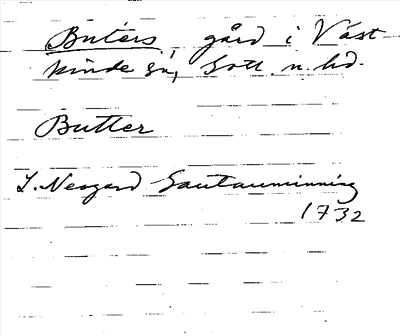 Buters, gård i Väst
kinde sn, Gotl. n. hd.
Butter
J. Neogard Gautauminning
1732